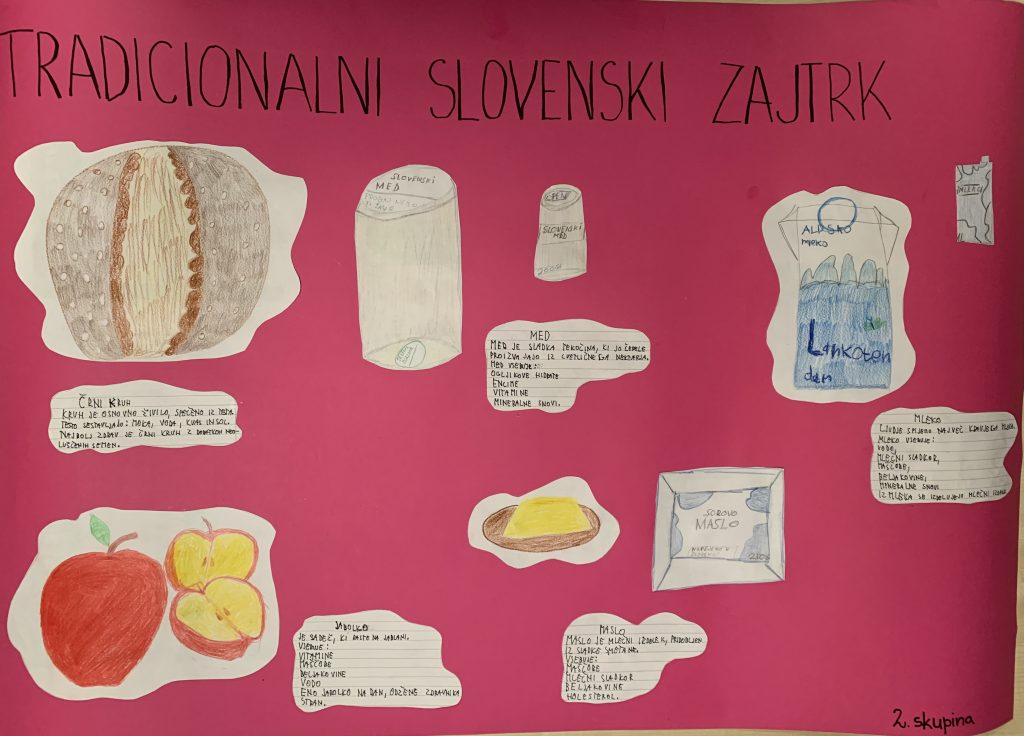 TRADICIONALNI SLOVENSKI ZAJTRK
SLOVENSKI
MED
SLOVENSKI
MED
MLEKO
ALPSKO
mleko
Lahkoten
dan
MED
MED JE SLADKA TEKOČINA, KI JO ČEBELE
PROIZVAJAJO IZ CVETLIČNEGA NEKTARJA.
MED VSEBUJE:
OGLJIKOVE HIDRATE
ENCIME
VITAMINE
MINERALNE SNOVI.
ČRNI KRUH
KRUH JE OSNOVNO ŽIVILO, SPEČENO IZ TESTA.
TESTO SESTAVLJAJO: MOKA, VODA, KVAS IN SOL.
NAJBOLJ ZDRAV JE ČRNI KRUH Z DODATKOM NEO-
LUŠČENIH SEMEN.
MLEKO
LJUDJE SPIJEMO NAJVEČ KRAVJEGA MLEKA.
MLEKO VSEBUJE:
VODO,
MLEČNI SLADKOR,
MAŠČOBE,
BELJAKOVINE,
MINERALNE SNOVI
IZ MLEKA SE IZDELUJEJO MLEČNI IZDELKI
SUROVO
MASLO
250g
JABOLKO
JE SADEŽ, KI RASTE NA JABLANI.
VSEBUJE:
VITAMINE
MAŠČOBE
BELJAKOVINE
VODO
ENO JABOLKO NA DAN, ODŽENE ZDRAVNIKA
STRAN.
MASLO
MASLO JE MLEČNI IZDELEK, PRIDOBLJEN
IZ SLADKE SMETANE.
VSEBUJE:
MAŠČOBE
MLEČNI SLADKOR
BELJAKOVINE
HOLESTEROL.
2. skupina